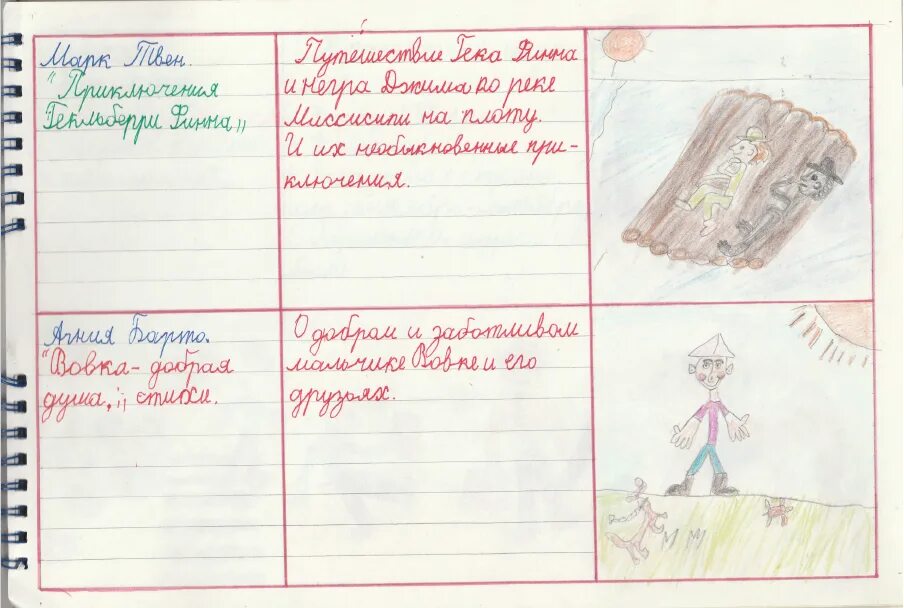 Марк Твен.
"Приключения
Гекльберри Финна„
Путешествие Гека Финна
и негра Джима по реке
Миссисипи на плоту.
И их необыкновенные при-
ключения.
Агния Барто.
"Вовка - добрая
душа„ стихи.
О добром и заботливом
мальчике Вовке и его
друзьях.